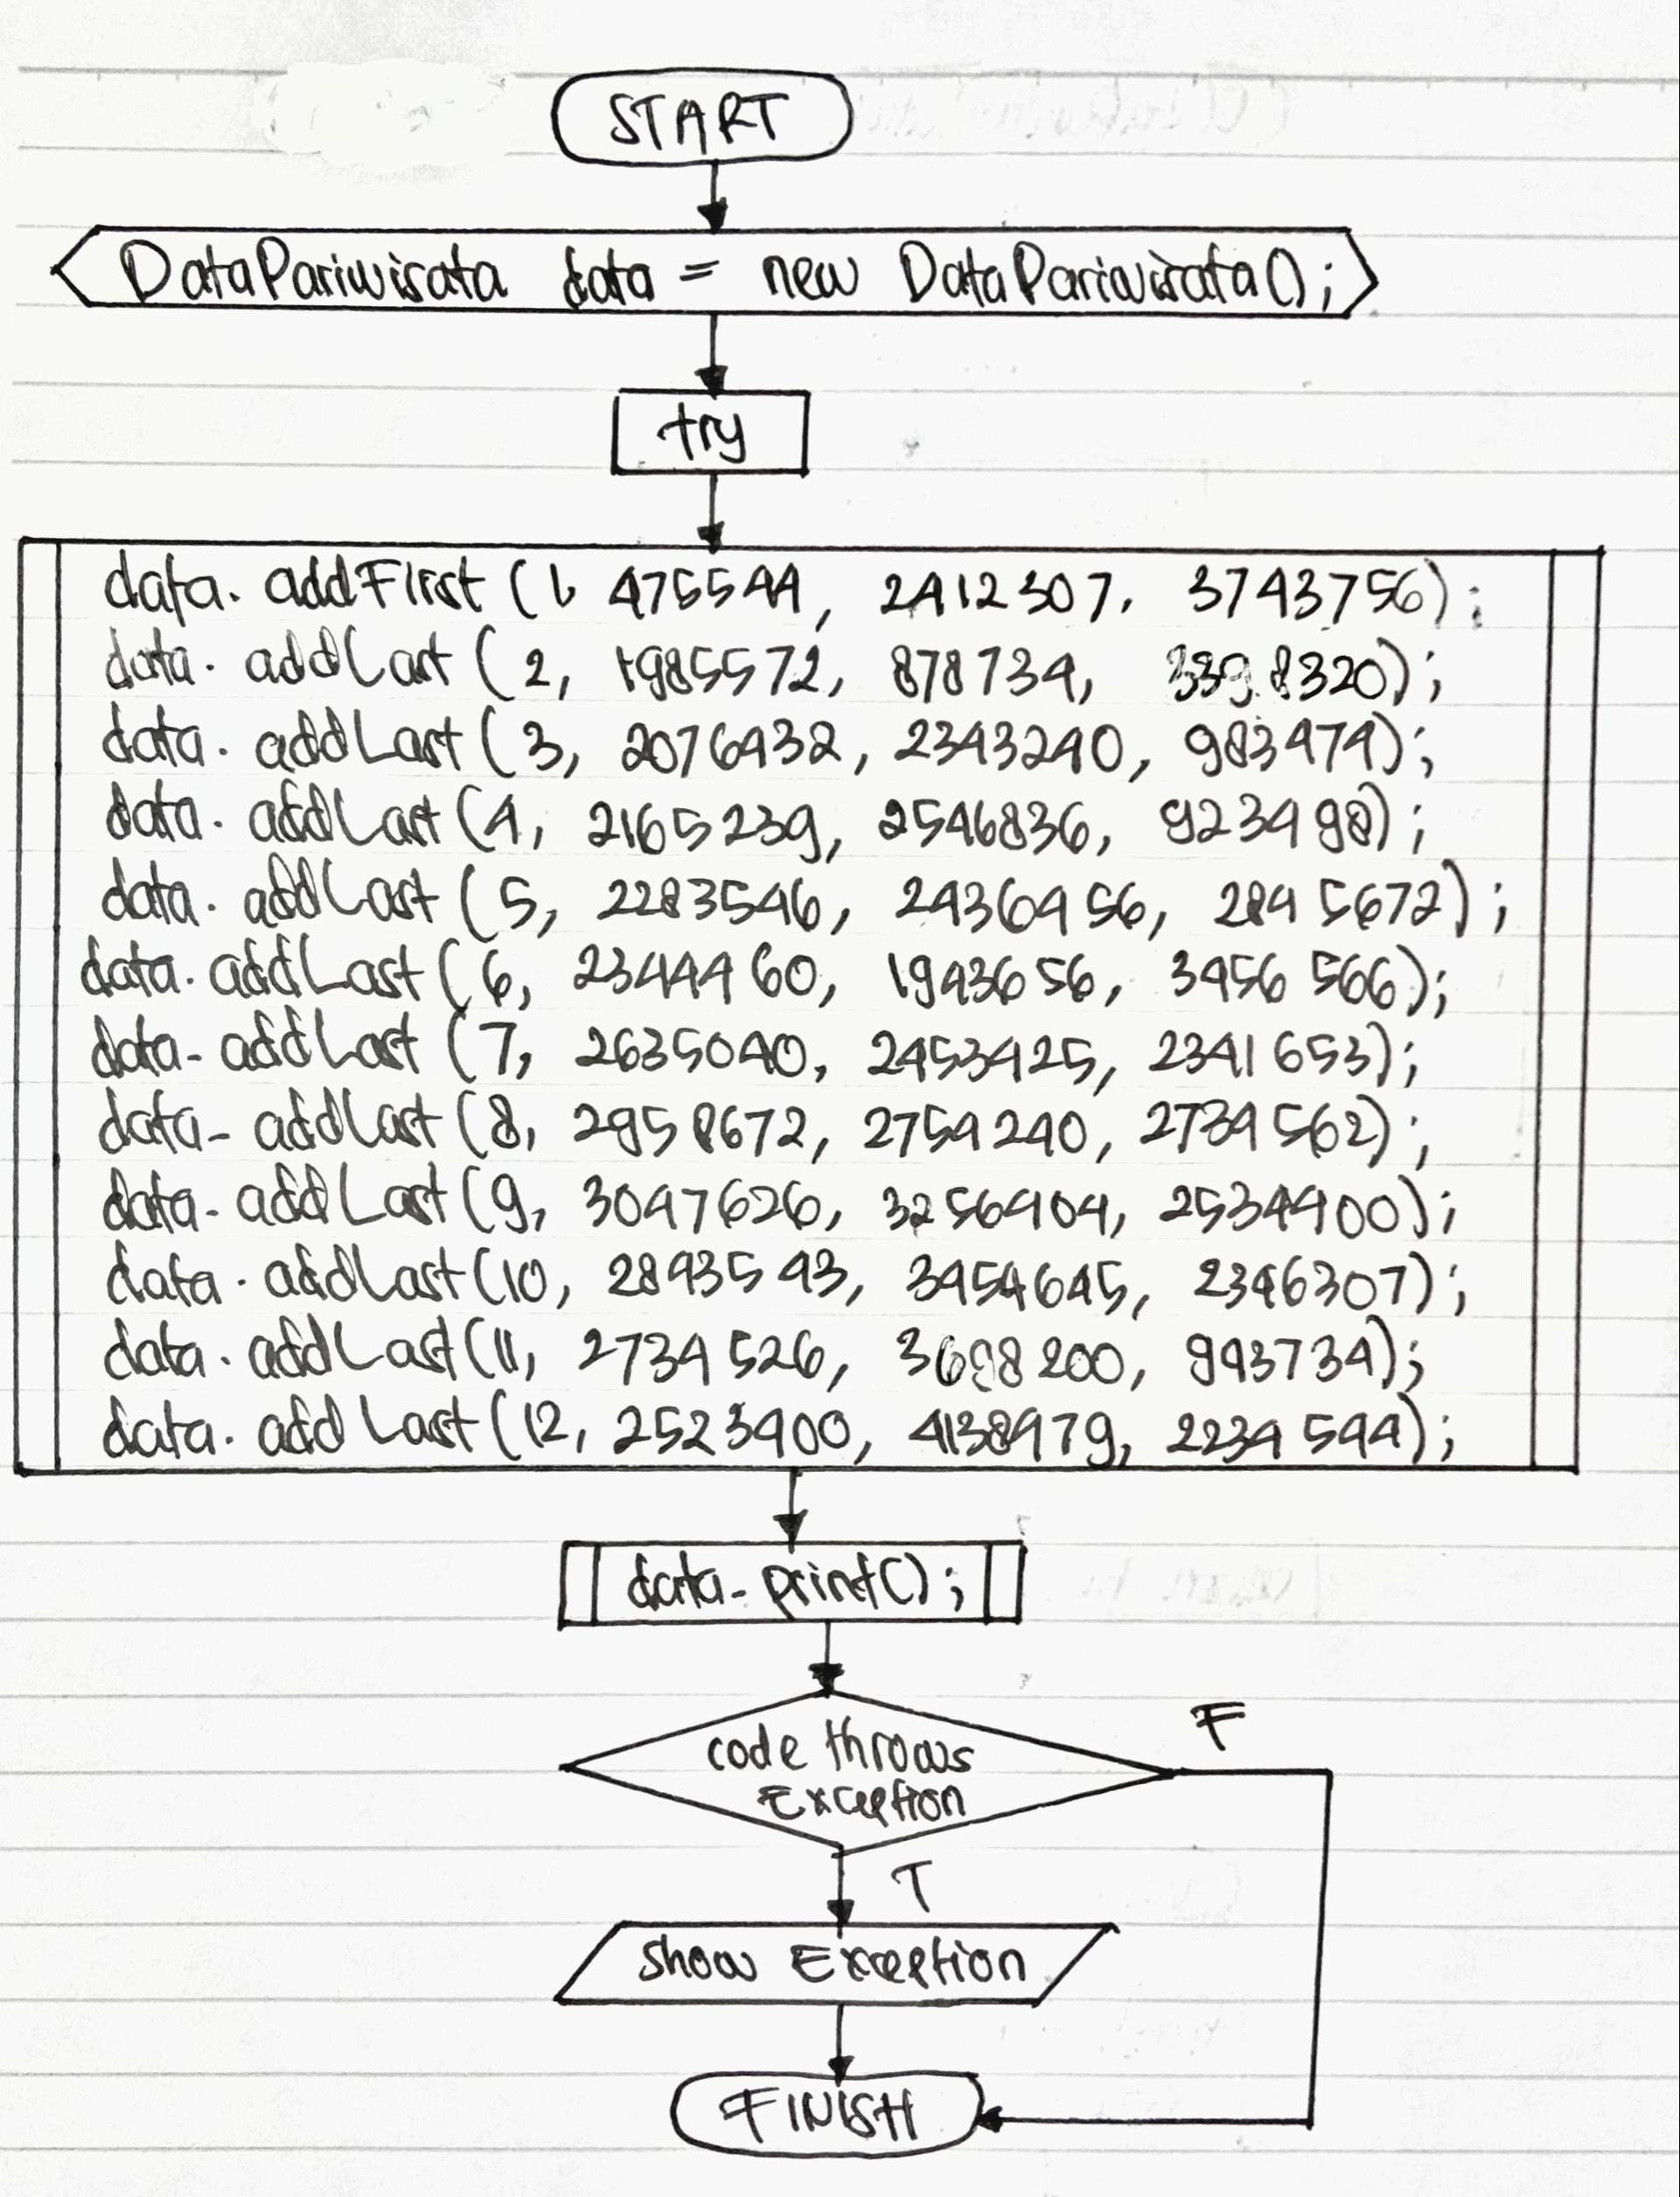 START
DataPariwisata data = new DataPariwisata();
try
data. addFirst (1, 475544, 2412307, 3743756);
data. addLast (2, 1985572, 878734, 3398320);
data. addLast (3, 2076432, 2343240, 983474);
data. addLast (4, 2165239, 2546836, 923498);
data. addLast (5, 2283546, 2436456, 2845672);
data. addLast (6, 2344460, 1943656, 3456566);
data. addLast (7, 2635040, 2453425, 2341653);
data. addLast (8, 2958672, 2754240, 2734562);
data. addLast (9, 3047626, 3256404, 2534400);
data. addLast (10, 2843543, 3454645, 2346307);
data. addLast (11, 2734526, 3698200, 943734);
data. addLast (12, 2523400, 4138479, 2234544);
data. print();
code throws
Exception
F
T
show Exception
FINISH